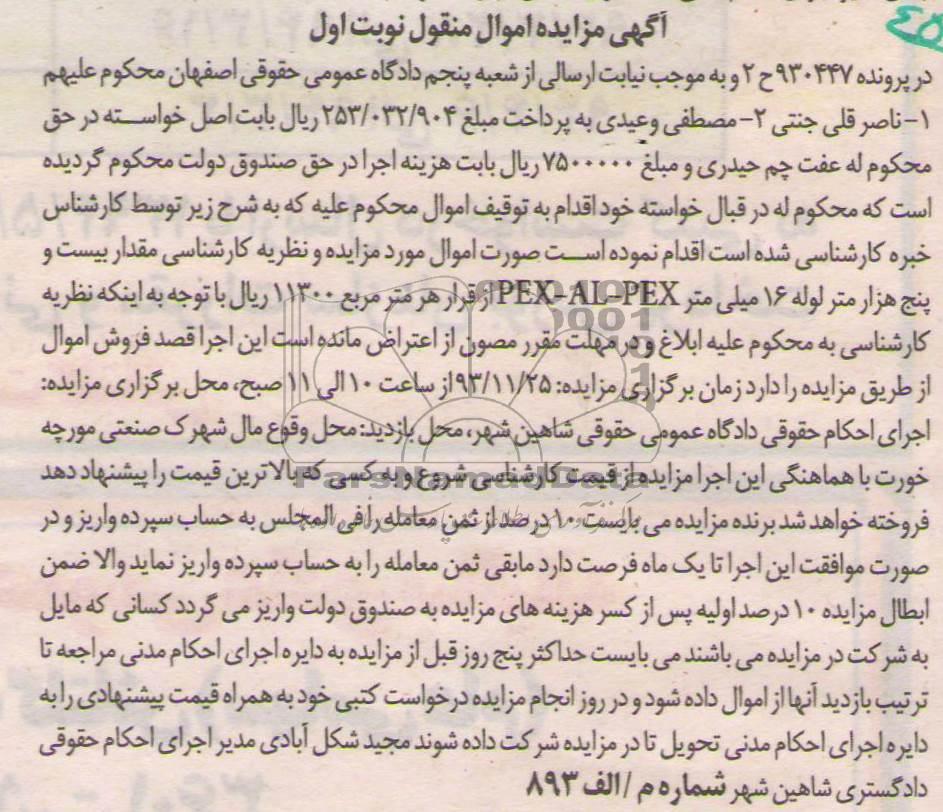 آگهی مزایده اموال منقول نوبت اول
در پرونده ۹۳۰۴۴۷ ح ۲ و به موجب نیابت ارسالی از شعبه پنجم دادگاه عمومی حقوقی اصفهان محکوم علیهم
۱- ناصر قلی جنتی ۲- مصطفی وعیدی به پرداخت مبلغ ۲۵۳/۰۳۲/۹۰۴ ریال بابت اصل خواسته در حق
محکوم له عفت چم حیدری و مبلغ ۷۵۰۰۰۰۰ ریال بابت هزینه اجرا در حق صندوق دولت محکوم گردیده
است که محکوم له در قبال خواسته خود اقدام به توقیف اموال محکوم علیه که به شرح زیر توسط کارشناس
خبره کارشناسی شده است اقدام نموده است صورت اموال مورد مزایده و نظریه کارشناسی مقدار بیست و
پنج هزار متر لوله ۱۶ میلی متر PEX-AL-PEX از قرار هر متر مربع ۱۱۳۰۰ ریال با توجه به اینکه نظریه
کارشناسی به محکوم علیه ابلاغ و در مهلت مقرر مصون از اعتراض مانده است این اجرا قصد فروش اموال
از طریق مزایده را دارد زمان برگزاری مزایده: ۹۳/۱۱/۲۵ از ساعت ۱۰ الی ۱۱ صبح، محل برگزاری مزایده:
اجرای احکام حقوقی دادگاه عمومی حقوقی شاهین شهر، محل بازدید: محل وقوع مال شهرک صنعتی مورچه
خورت با هماهنگی این اجرا مزایده از قیمت کارشناسی شروع و به کسی که بالاترین قیمت را پیشنهاد دهد
فروخته خواهد شد برنده مزایده می بایست ۱۰ درصد از ثمن معامله را فی المجلس به حساب سپرده واریز و در
صورت موافقت این اجرا تا یک ماه فرصت دارد مابقی ثمن معامله را به حساب سپرده واریز نماید والا ضمن
ابطال مزایده ۱۰ درصد اولیه پس از کسر هزینه های مزایده به صندوق دولت واریز می گردد کسانی که مایل
به شرکت در مزایده می باشند می بایست حداکثر پنج روز قبل از مزایده به دایره اجرای احکام مدنی مراجعه تا
ترتیب بازدید آنها از اموال داده شود و در روز انجام مزایده درخواست کتبی خود به همراه قیمت پیشنهادی را به
دایره اجرای احکام مدنی تحویل تا در مزایده شرکت داده شوند مجید شکل آبادی مدیر اجرای احکام حقوقی
دادگستری شاهین شهر شماره م / الف ۸۹۳
ParsNamadData